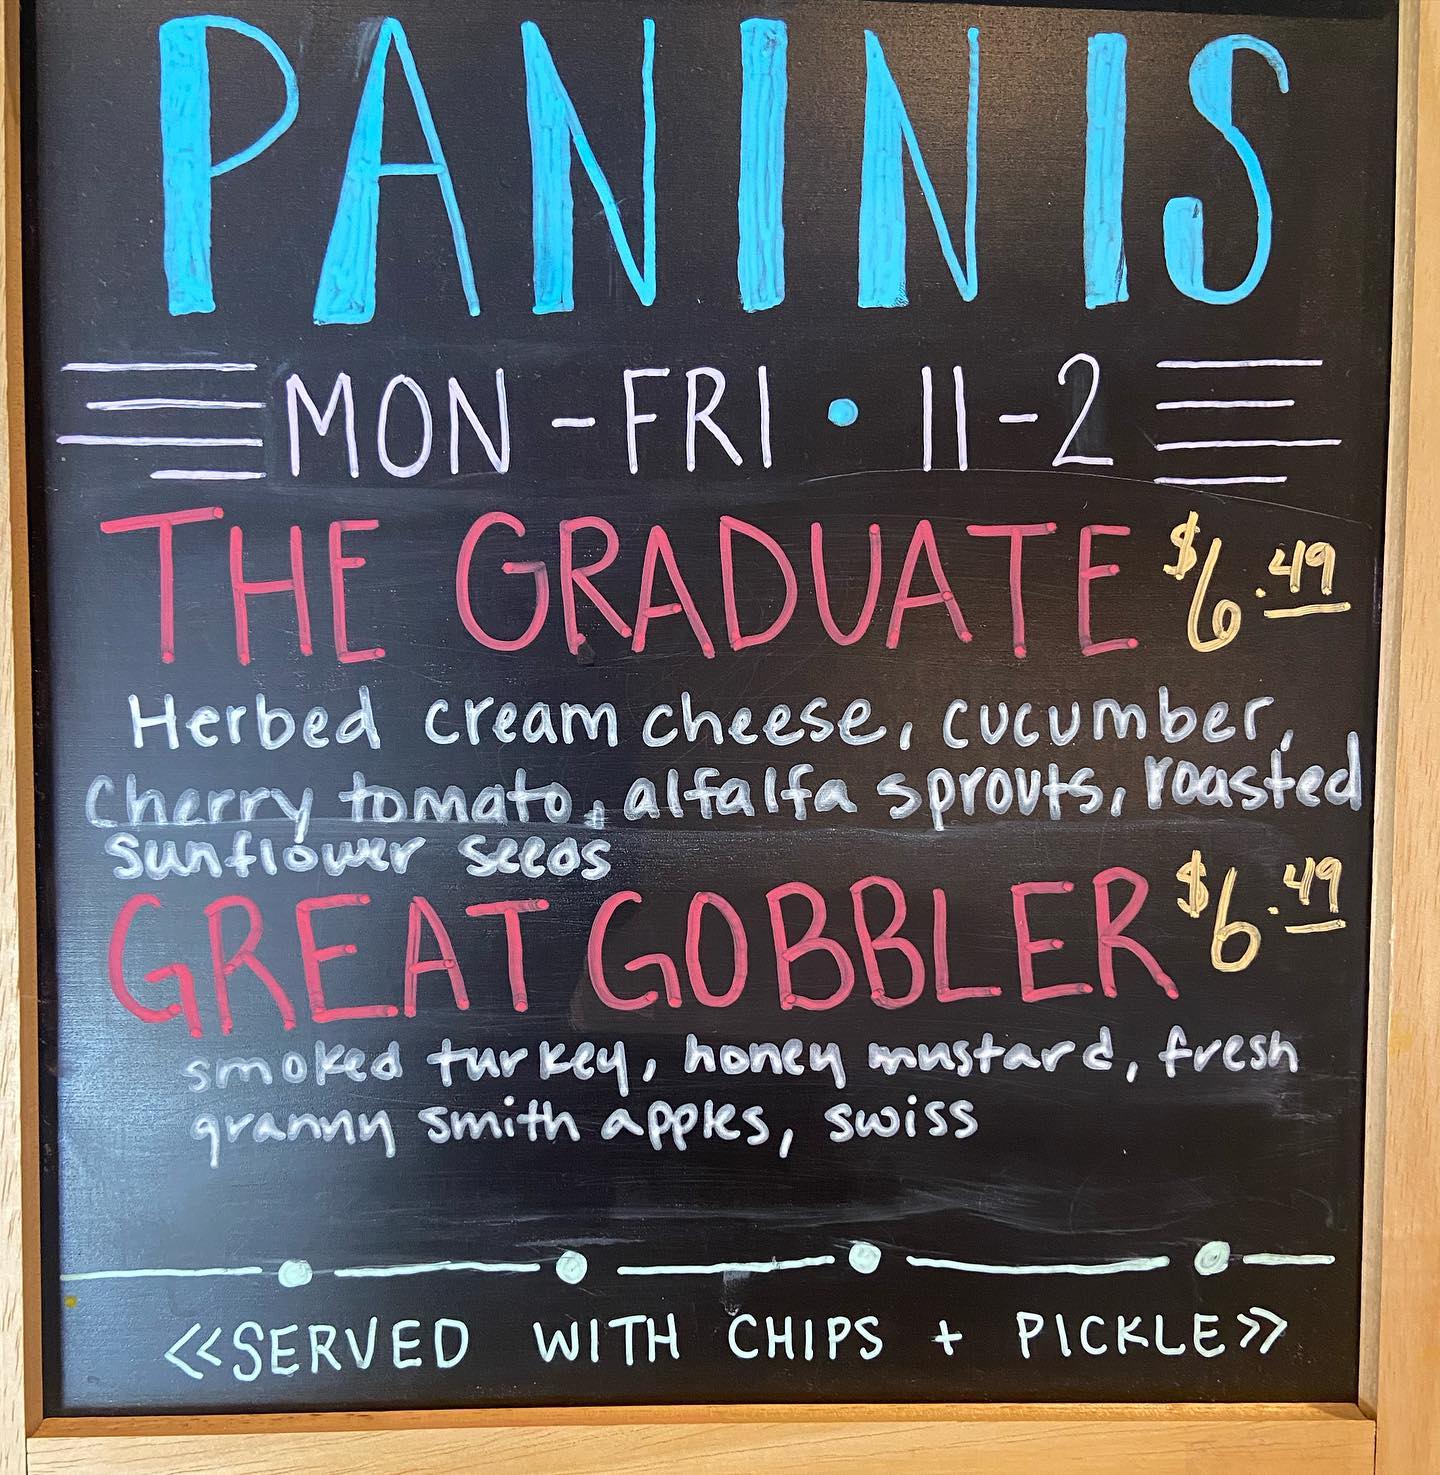 PANINIS
MON - FRI • 11-2
THE GRADUATE $6.49
Herbed cream cheese, cucumber,
Cherry tomato, alfalfa sprouts, roasted
sunflower seeds
GREAT GOBBLER $6.49
smoked turkey, honey mustard, fresh
granny smith apples, swiss
<<SERVED WITH CHIPS + PICKLE>>